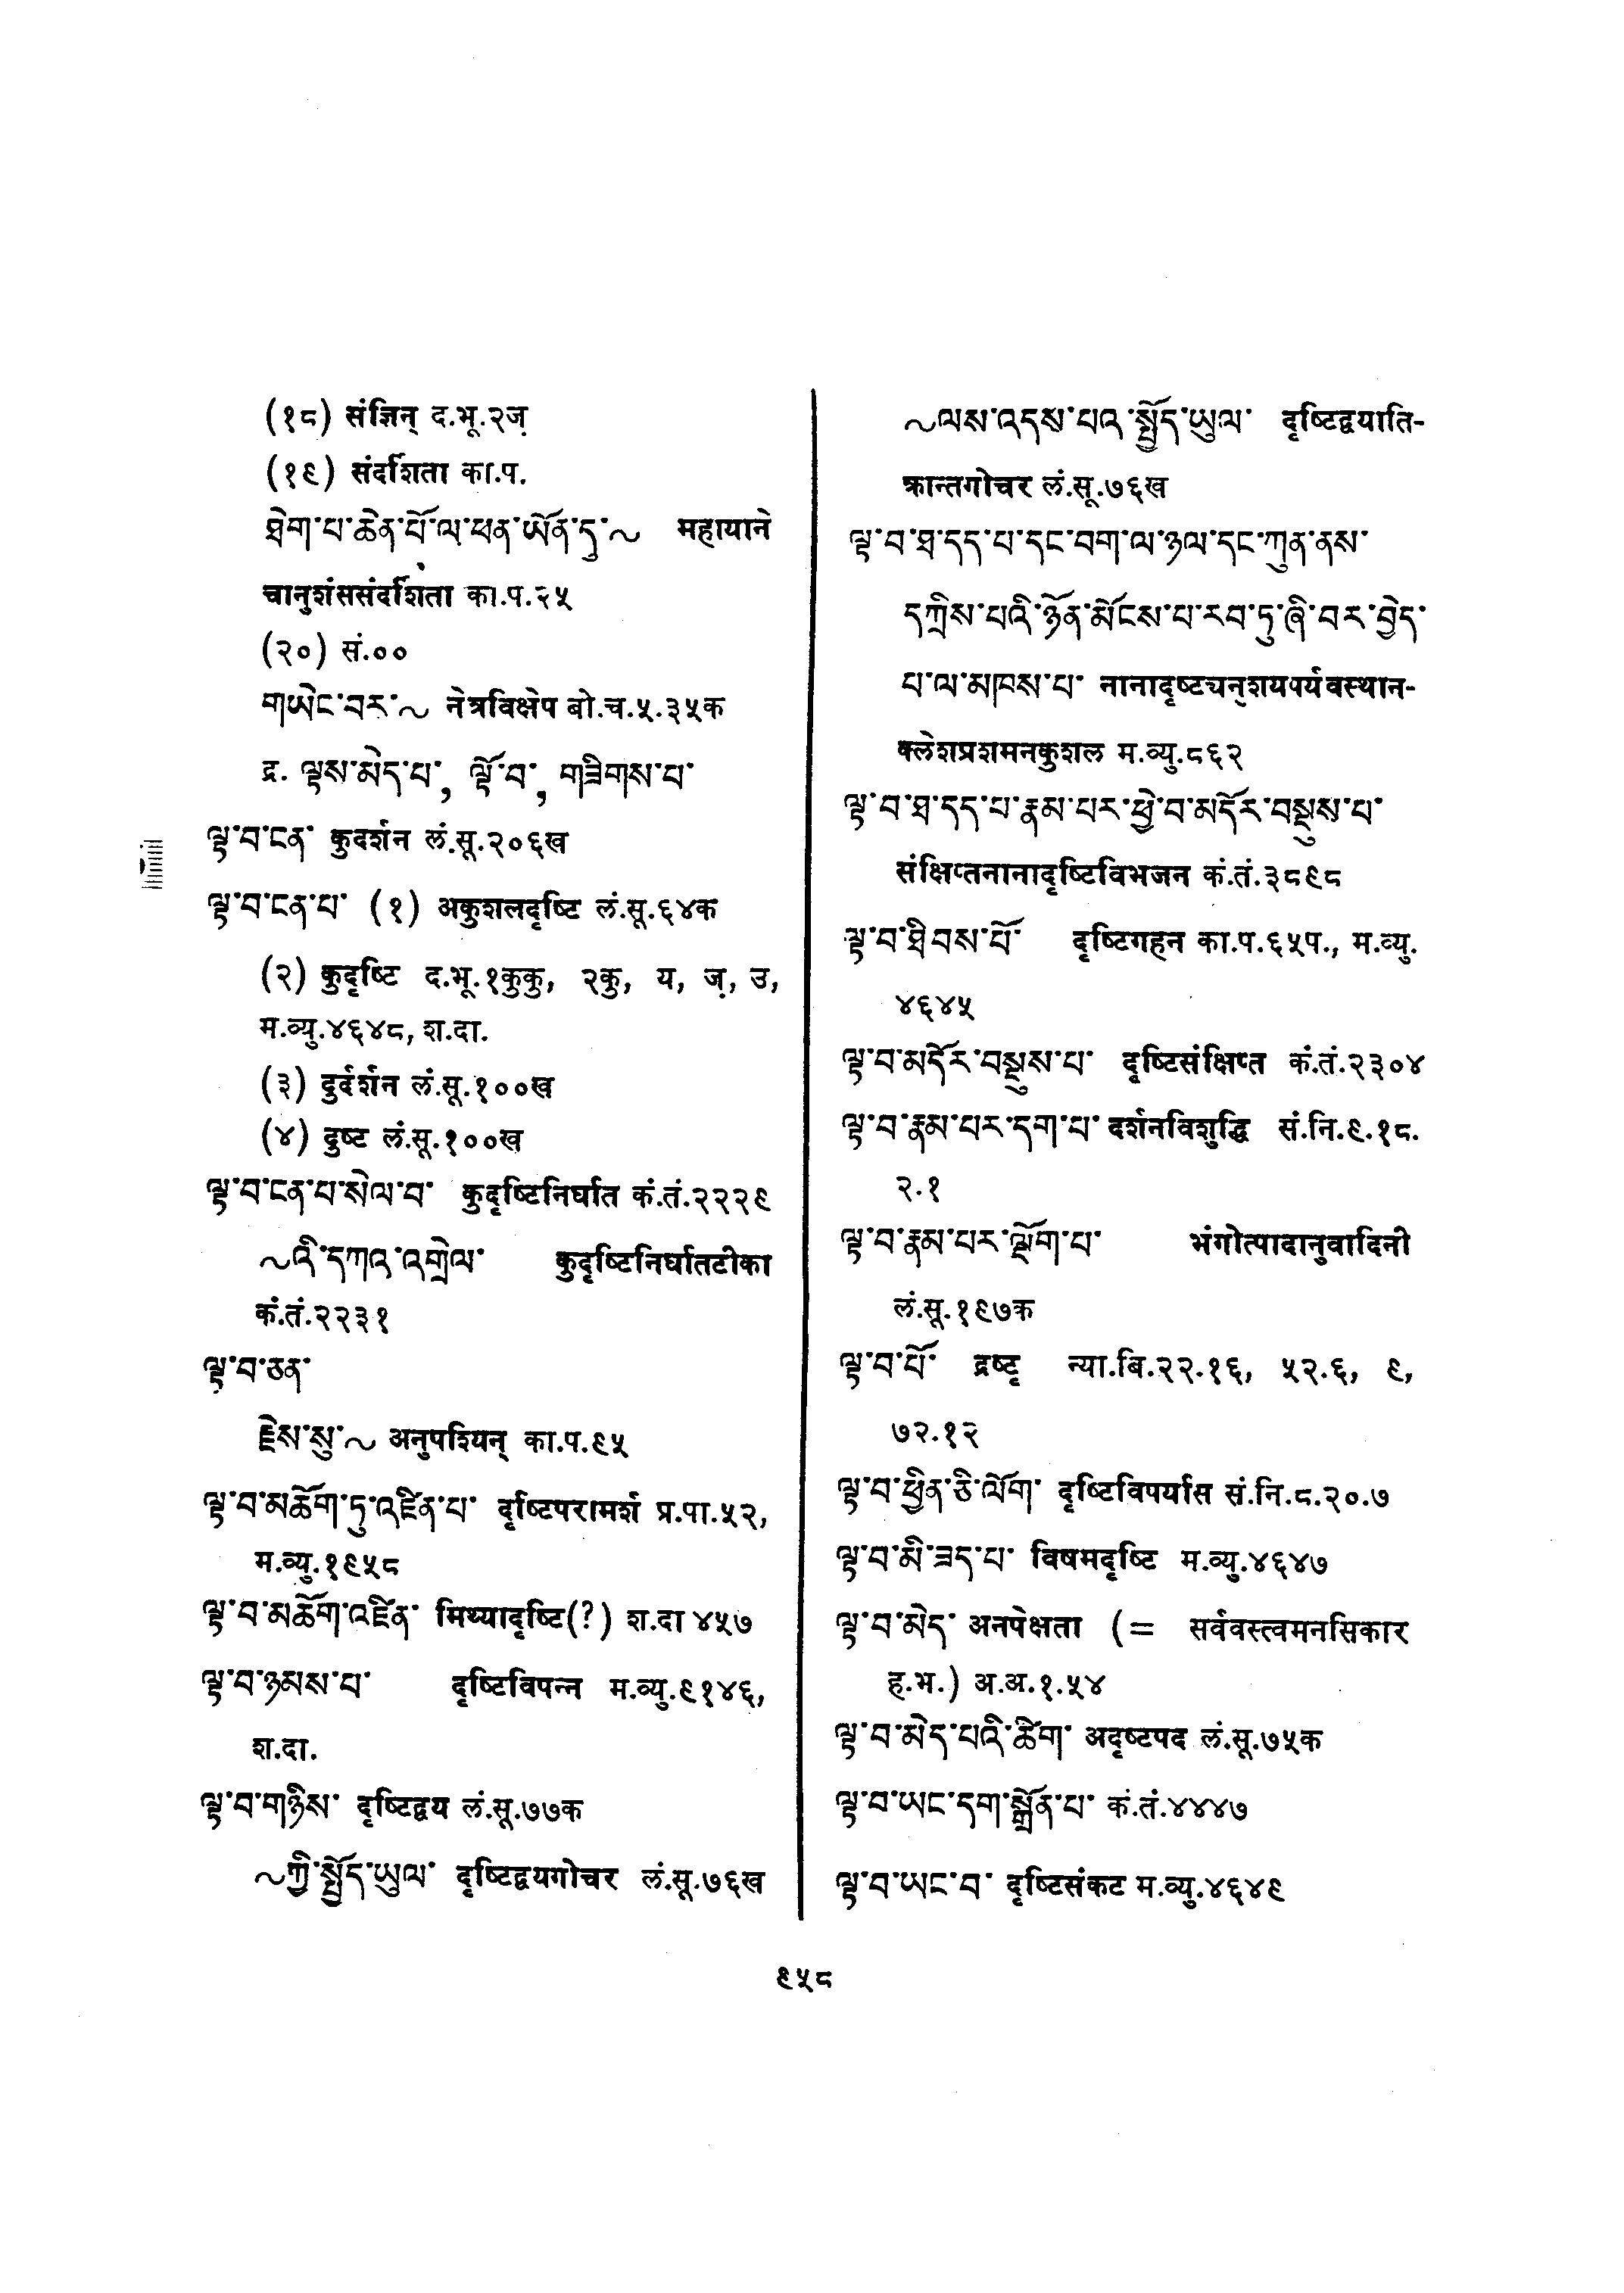 (१८) संज्ञिन् द.भू.२ज़
(१९) संदर्शिता का.प.
ཐེག་པ་ཆེན་པོ་ལ་ཕན་ཡོན་དུ་~ महायाने
चानुशंससंदर्शिता का.प.२५
(२०) सं.००
གཡེང་བར་~ नेत्रविक्षेप बो.च.५.३५क
द्र. ལྟས་མེད་པ་, ལྟོ་བ་, གཟིགས་པ་
ལྟ་བ་ངན་ कुदर्शन लं.सू.२०६ख
ལྟ་བ་ངན་པ་ (१) अकुशलदृष्टि लं.सू.६४क
(२) कुदृष्टि द.भू.१कुकु, २कु, य, ज़, उ,
म.व्यु.४६४८, श.दा.
(३) दुर्दर्शन लं.सू.१००ख
(४) दुष्ट लं.सू.१००ख
ལྟ་བ་ངན་པ་སེལ་བ་ कुदृष्टिनिर्घात कं.तं.२२२९
~འི་དཀའ་འགྲེལ་ कुदृष्टिनिर्घातटीका
कं.तं.२२३१
ལྟ་བ་ཅན་
རྗེས་སུ་~ अनुपश्यिन् का.प.९५
ལྟ་བ་མཆོག་ཏུ་འཛིན་པ་ दृष्टिपरामर्श प्र.पा.५२,
म.व्यु.१९५८
ལྟ་བ་མཆོག་འཛིན་ मिथ्यादृष्टि(?) श.दा ४५७
ལྟ་བ་ཉམས་པ་ दृष्टिविपन्न म.व्यु.९१४६,
श.दा.
ལྟ་བ་གཉིས་ दृष्टिद्वय लं.सू.७७क
~ཀྱི་སྤྱོད་ཡུལ་ दृष्टिद्वयगोचर लं.सू.७६ख
~ལས་འདས་པའ་སྤྱོད་ཡུལ་ दृष्टिद्वयाति-
क्रान्तगोचर लं.सू.७६ख
ལྟ་བ་ཐ་དད་པ་དང་བག་ལ་ཉལ་དང་ཀུན་ནས་
དཀྲིས་པའི་ཉོན་མོངས་པ་རབ་ཏུ་ཞི་བར་བྱེད་
པ་ལ་མཁས་པ་ नानादृष्टचनुशयपर्यवस्थान-
क्लेशप्रशमनकुशल म.व्यु.८६२
ལྟ་བ་ཐ་དད་པ་རྣམ་པར་ཕྱེ་བ་མདོར་བསྡུས་པ་
संक्षिप्तनानादृष्टिविभजन कं.तं.३८९८
ལྟ་བ་ཐིབས་པོ་ दृष्टिगहन का.प.६५प., म.व्यु.
४६४५
ལྟ་བ་མདོར་བསྡུས་པ་ दृष्टिसंक्षिप्त कं.तं.२३०४
ལྟ་བ་རྣམ་པར་དག་པ་ दर्शनविशुद्धि सं.नि.९.१८.
२.१
ལྟ་བ་རྣམ་པར་ལྡོག་པ་ भंगोत्पादानुवादिनी
लं.सू.१९७क
ལྟ་བ་པོ་ द्रष्टृ न्या.बि.२२.१६, ५२.६, ९,
७२.१२
ལྟ་བ་ཕྱིན་ཅི་ལོག་ दृष्टिविपर्यास सं.नि.८.२०.७
ལྟ་བ་མི་ཟད་པ་ विषमदृष्टि म.व्यु.४६४७
ལྟ་བ་མེད་ अनपेक्षता (= सर्ववस्त्वमनसिकार
ह.भ.) अ.अ.१.५४
ལྟ་བ་མེད་པའི་ཚིག་ अदृष्टपद लं.सू.७५क
ལྟ་བ་ཡང་དག་སྒྲོན་པ་ कं.तं.४४४७
ལྟ་བ་ཡང་བ་ दृष्टिसंकट म.व्यु.४६४९
९५८